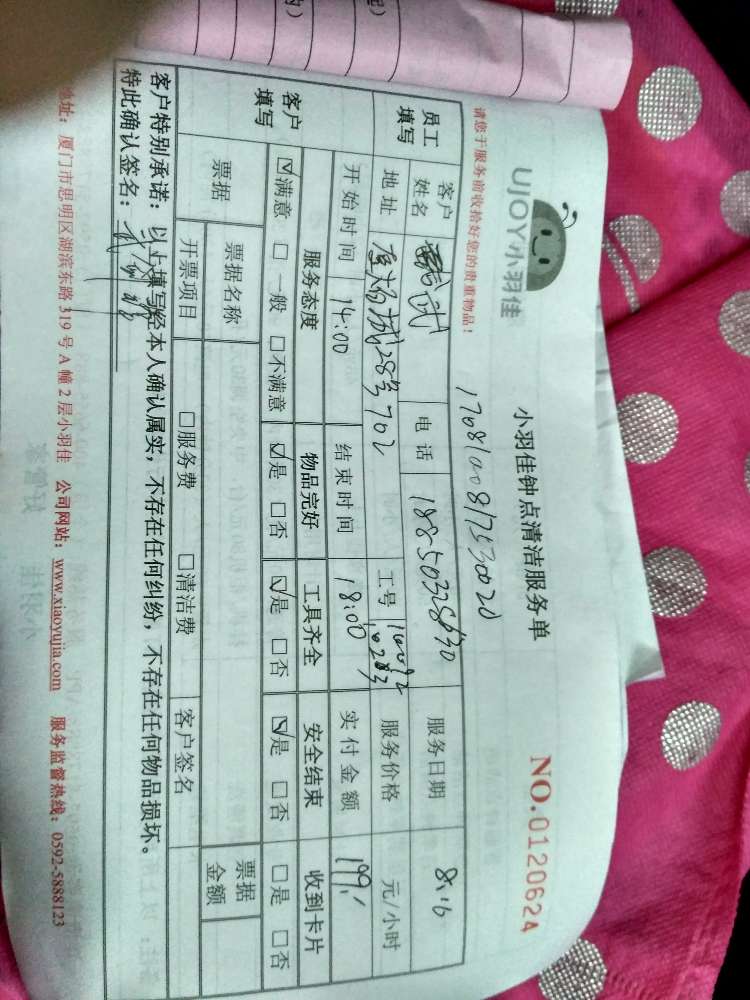 UJOY小羽佳
小羽佳钟点清洁服务单
NO.0120624
请您于服务前收拾好您的贵重物品!
员工填写
客户姓名
电话
服务日期 8.16
地址
28号702
工号
服务价格 元/小时
开始时间 14:00 结束时间 18:00 实付金额 199
客户填写
服务态度 物品完好 工具齐全 安全结束 收到卡片
☑满意 □一般 □不满意 ☑是 □否 ☑是 □否 ☑是 □否 □是 □否
票据 票据名称 票据金额
开票项目 □服务费 □清洁费 客户签名
客户特别承诺:以上填写经本人确认属实,不存在任何纠纷,不存在任何物品损坏。
特此确认签名:
地址:厦门市思明区湖滨东路319号A幢2层小羽佳 公司网站:www.xiaoyujia.com 服务监督热线:0592-5888123